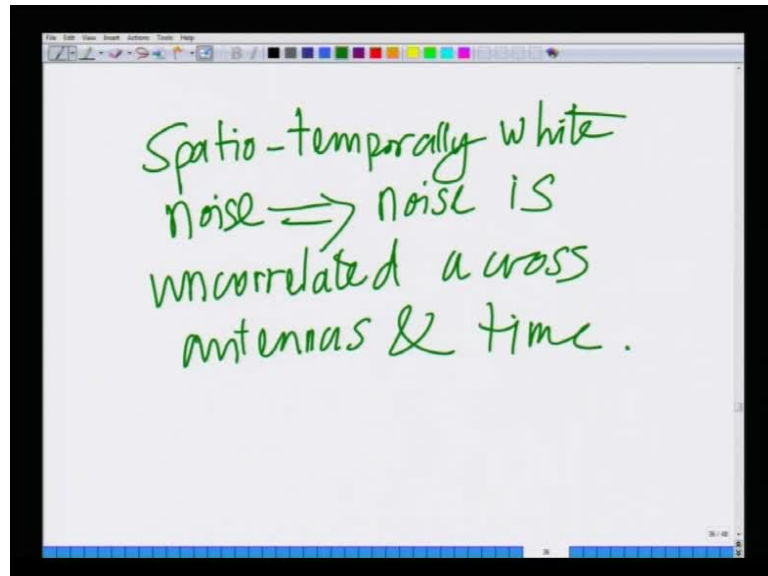 File Edit View Insert Actions Tools Help
Spatio-temporally white
noise ⇒ noise is
uncorrelated across
antennas & time.
36/48
36